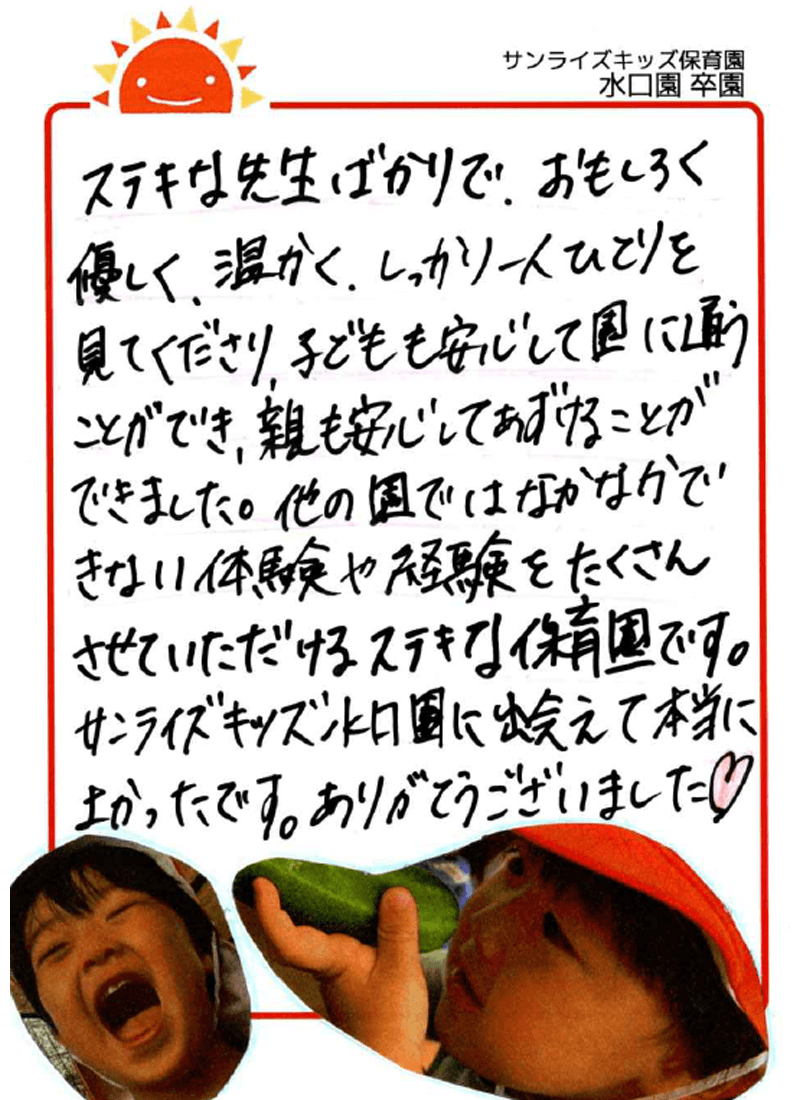 サンライズキッズ保育園
水口園 卒園
ステキな先生ばかりで、おもしろく
優しく、温かく、しっかり一人ひとりを
見てくださり、子どもも安心して園に通う
ことができ、親も安心してあずけることが
できました。他の園ではなかなかで
きない体験や経験をたくさん
させていただけるステキな保育園です。
サンライズキッズ水口園に出会えて本当に
よかったです。ありがとうございました♡